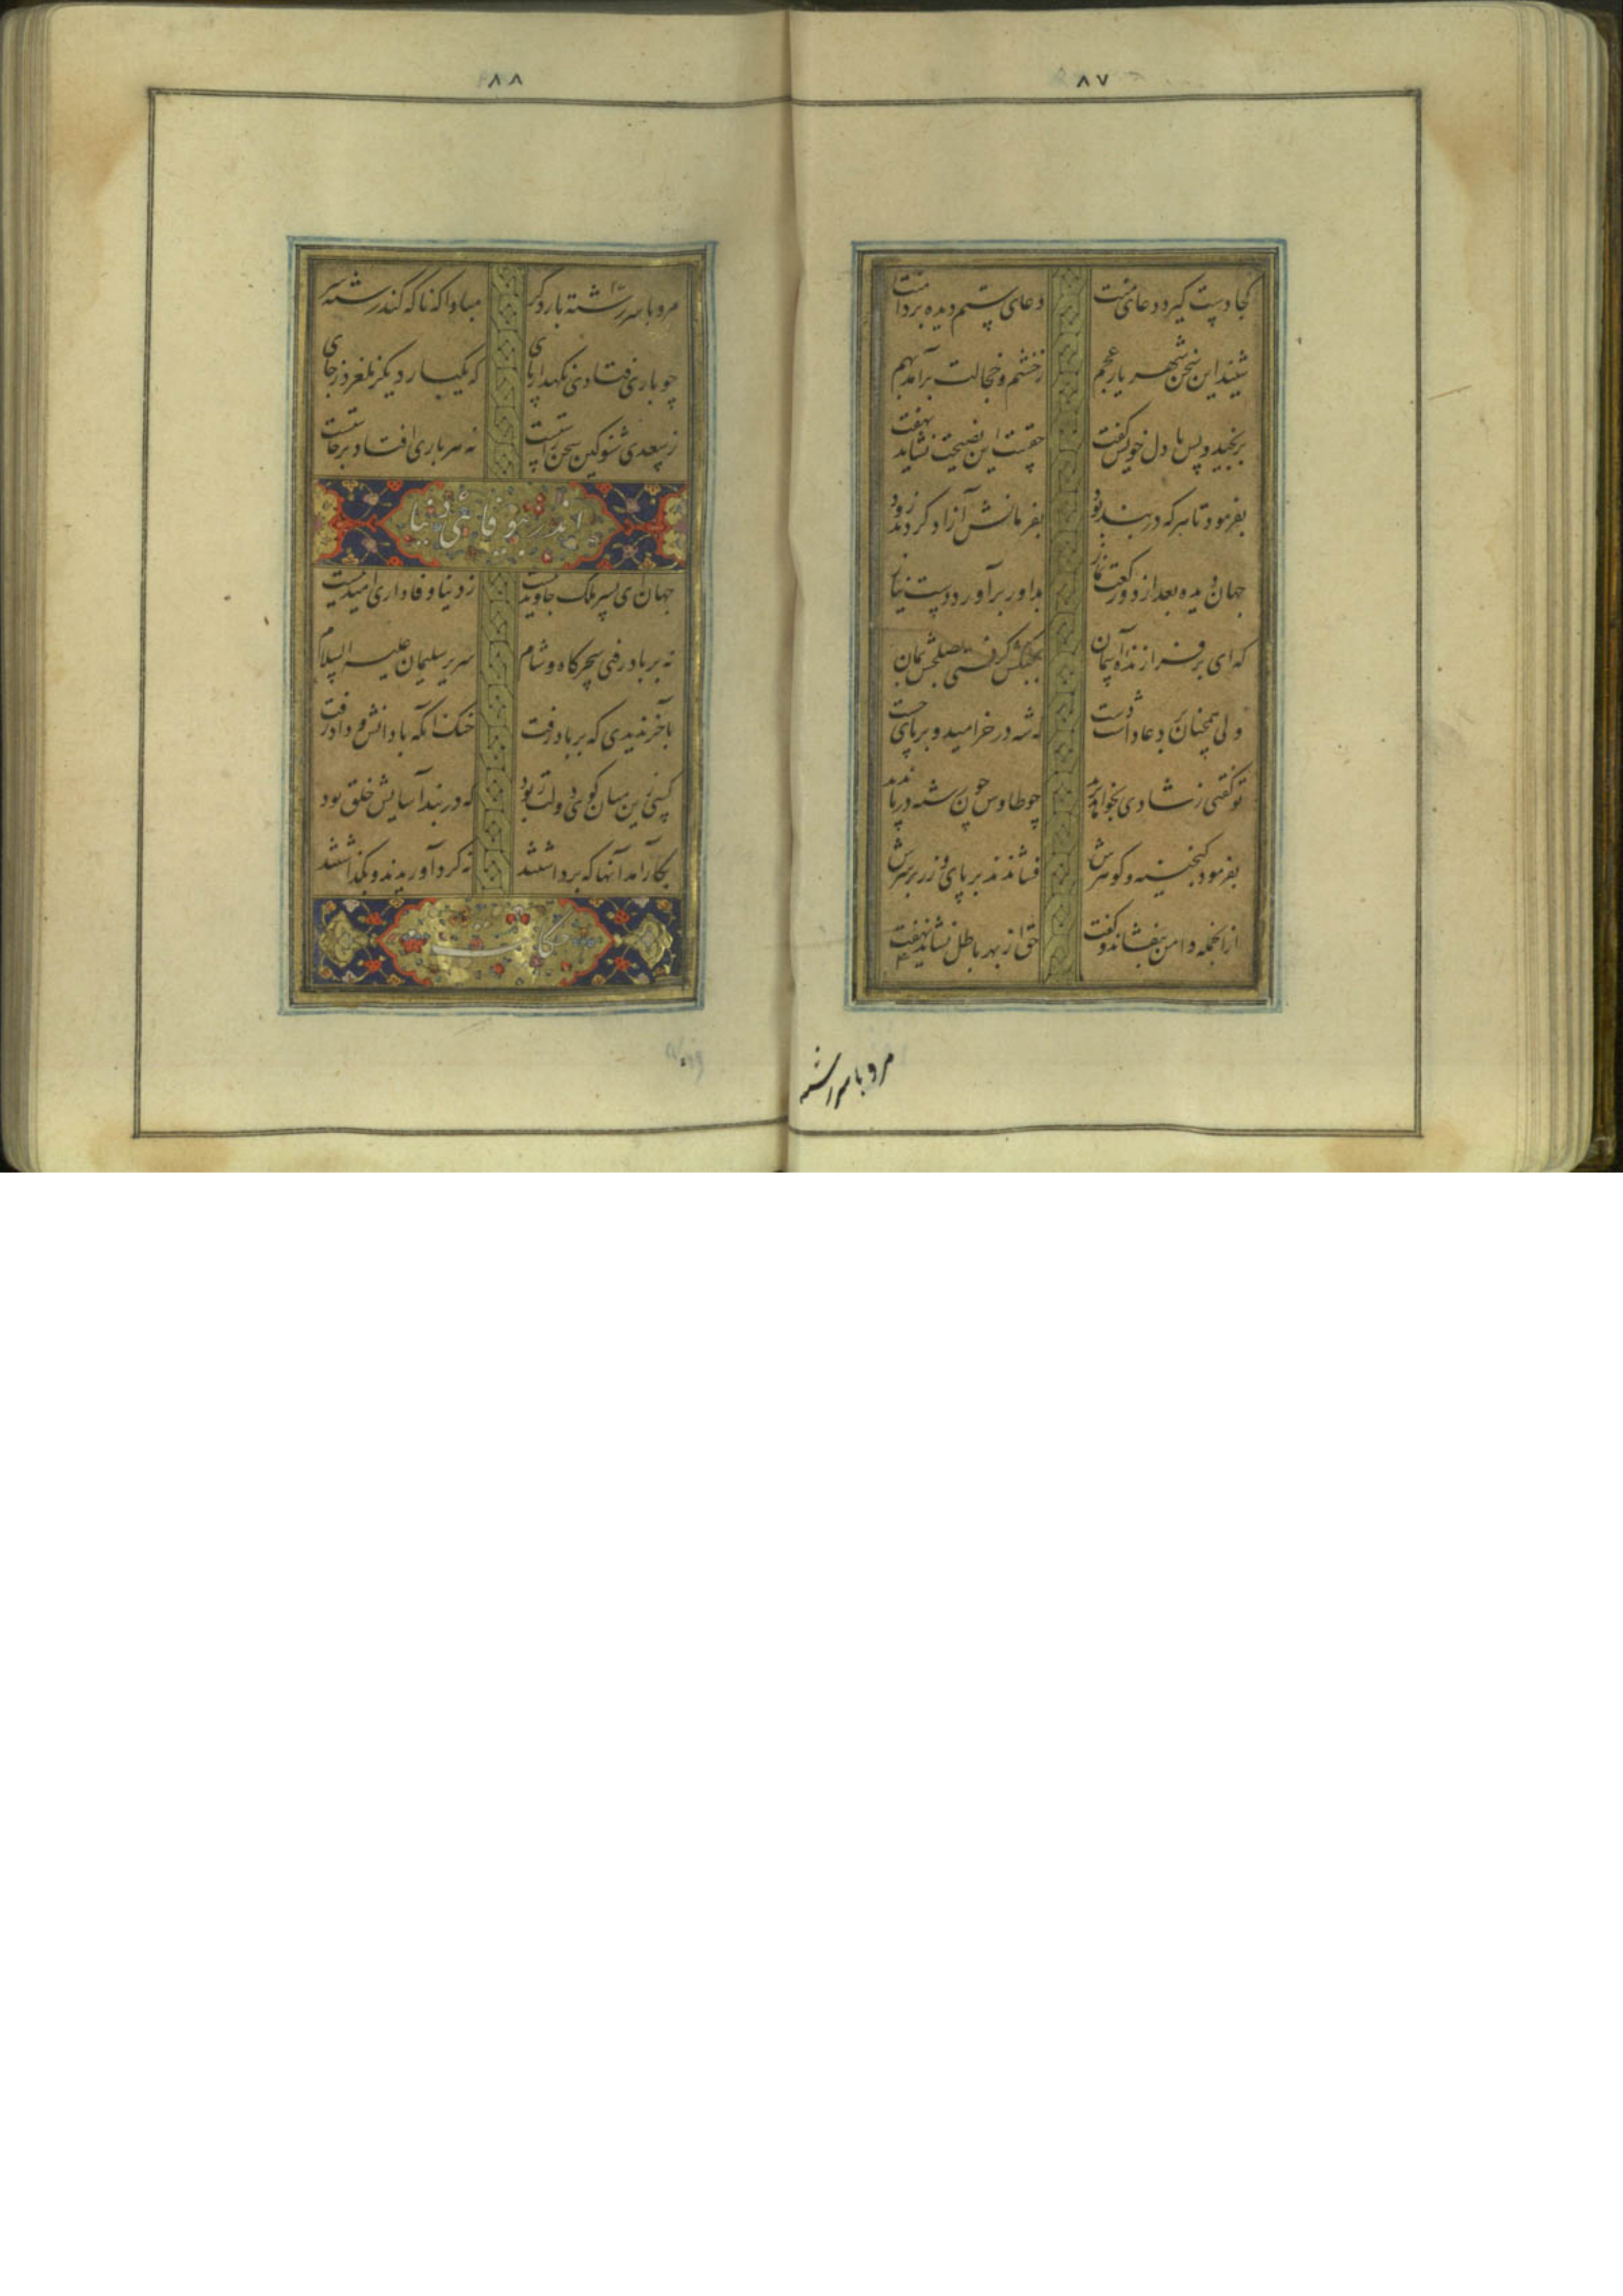 ۸۷
کجا دست گیرد دعای منت دعای ستم دیده بر دامنت
شنید این سخن شهریار عجم ز خشم و خجالت برآمد بهم
برنجید و پس با دل خویش گفت حقست این نصیحت نشاید نهفت
بفرمود تا هر که در بند بود بفرمانش آزاد کردند زود
جهان دیده بعد از دو رکعت نماز بداور برآورد دست نیاز
که ای بر فرازنده آسمان بجنگش گرفتی بصلحش بمان
ولی همچنان بر دعا داشت دست که شه در خرامید و بر پای جست
تو گفتی ز شادی بخواهد پرید چو طاوس چون رشته در پا ندید
بفرمود گنجینه و گوهرش فشاندند بر پای و زر بر سرش
ازانجمله دامن بیفشاند و گفت حق از بهر باطل نشاید نهفت
مرو با سر رشته
۸۸
مرو با سر رشته بار دگر مبادا که ناگه کند رشته سر
چو باری فتادی نگهدار پای که یکبار دیگر نلغزد ز جای
ز سعدی شنو کین سخن راستست نه هر باری افتاد برخاستست
اندر بیوفائی دنیا
جهان ای پسر ملک جاوید نیست ز دنیا وفاداری امید نیست
نه بر باد رفتی سحرگاه و شام سریر سلیمان علیه السلام
بآخر ندیدی که بر باد رفت خنک آنکه با دانش و داد رفت
کسی زین میان گوی دولت ربود که در بند آسایش خلق بود
بکار آمد آنها که برداشتند نه گرد آوریدند و بگذاشتند
حکایت